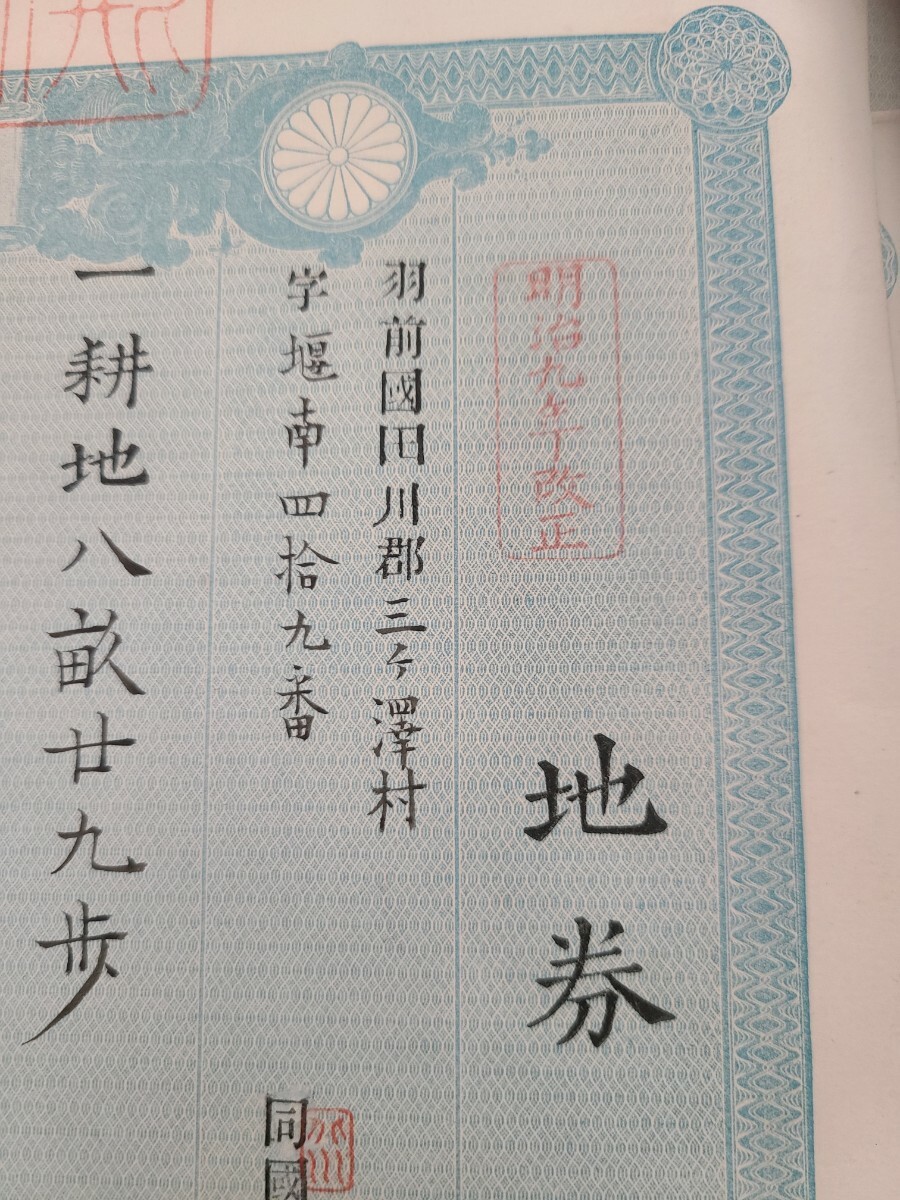 明治九年改正
地券
羽前國田川郡三ヶ澤村
字堰南四拾九番
同國
一耕地八畝廿九歩